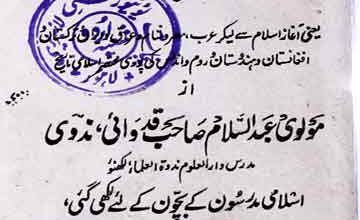 یعنی آغاز اسلام سے لیکر عرب، مصر و شام، عراق و ترکستان
افغانستان و ہندوستان روم و اندلس کی پوری مختصر اسلامی تاریخ
از
مولوی عبدالسلام صاحب قدوائی، ندوی
مدرس دارالعلوم ندوۃ العلماء لکھنؤ
اسلامی مدرسون کے بچون کے لئے لکھی گئی،